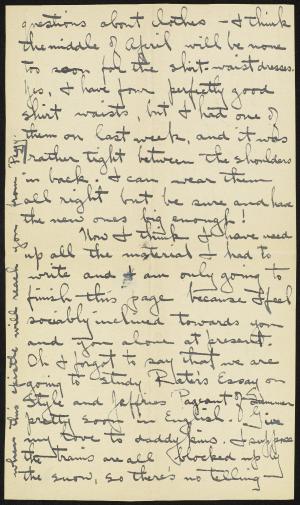 questions about clothes - I think
the middle of April will be none
too soon for the shirt-waist dresses.
Yes, I have four perfectly good
shirt waists, but I had one of
them on last week, and it was
rather tight between the shoulders
in back. I can wear them
all right but be sure and have
the new ones big enough!
Now I think I have used
up all the material I had to
write and I am only going to
finish this page because I feel
sociably inclined towards you
and you alone at present.
Oh I forgot to say that we are
going to study Pater's Essay on
Style and Jeffries Pageant of Summer
pretty soon in English. Give
my love to daddykins. I suppose
the trains are all blocked up by
the snow, so there's no telling -
when this epistle will reach you from